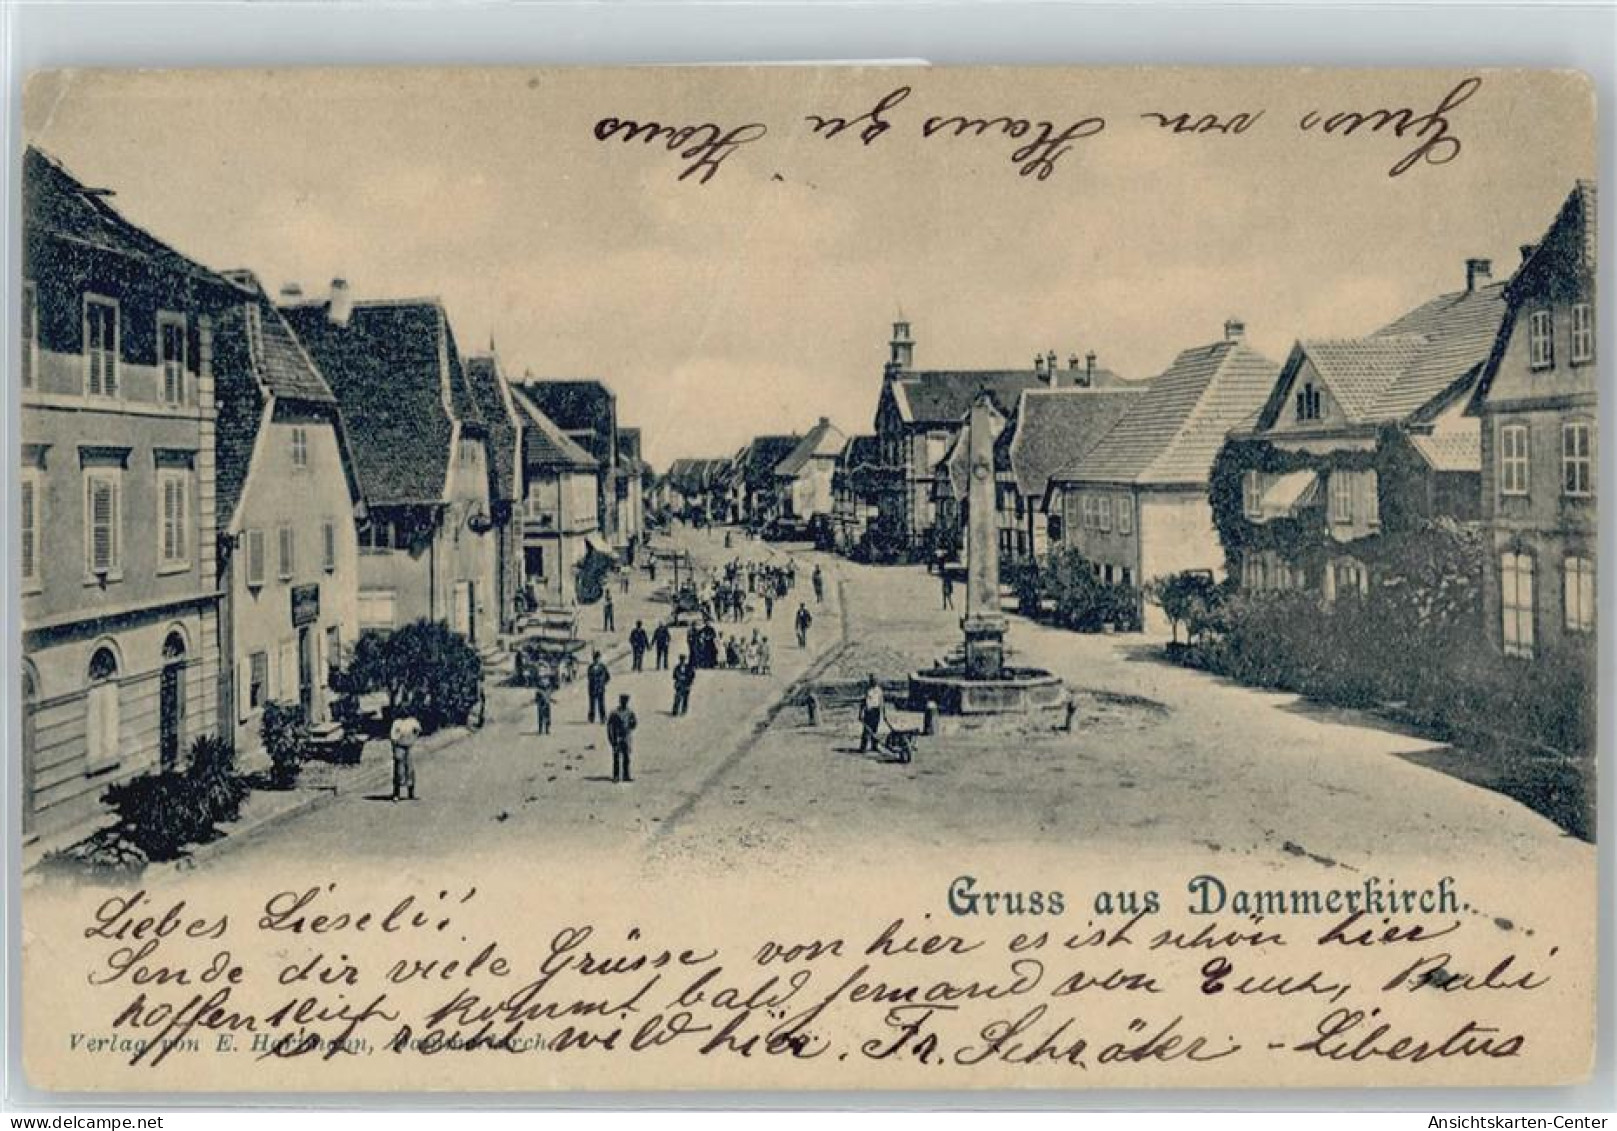 Gruss von Haus zu Haus
Gruss aus Dammerkirch.
Liebes Lieseli!
Sende dir viele Grüsse von hier es ist schön hier
hoffentlich kommt bald jemand von Euch, Bubi
ist recht wild hier. Fr. Schräter - Libertus
Verlag von E. Hartmann, Dammerkirch.
Ansichtskarten-Center